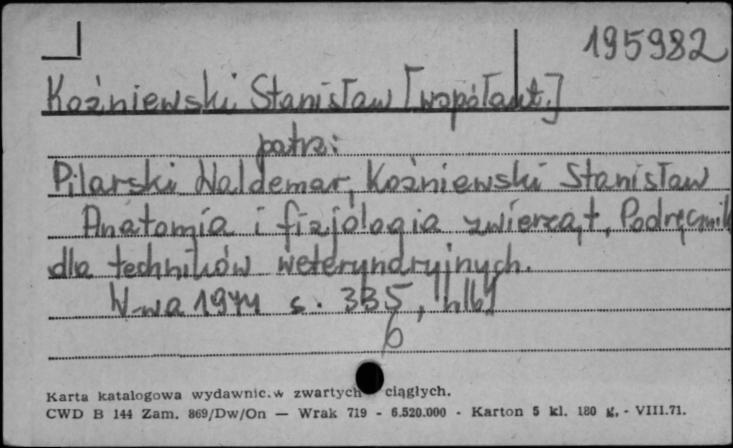 195982
Koźniewski Stanisław [współaut.]
patrz:
Pilarski Waldemar, Koźniewski Stanisław
Anatomia i fizjologia zwierząt, Podręcznik
dla techników weterynaryjnych.
W-wa 1974 s. 335,
6
Karta katalogowa wydawnic.w zwartych ciągłych.
CWD B 144 Zam. 869/Dw/On — Wrak 719 - 6.520.000 - Karton 5 kl. 180 g. - VIII.71.